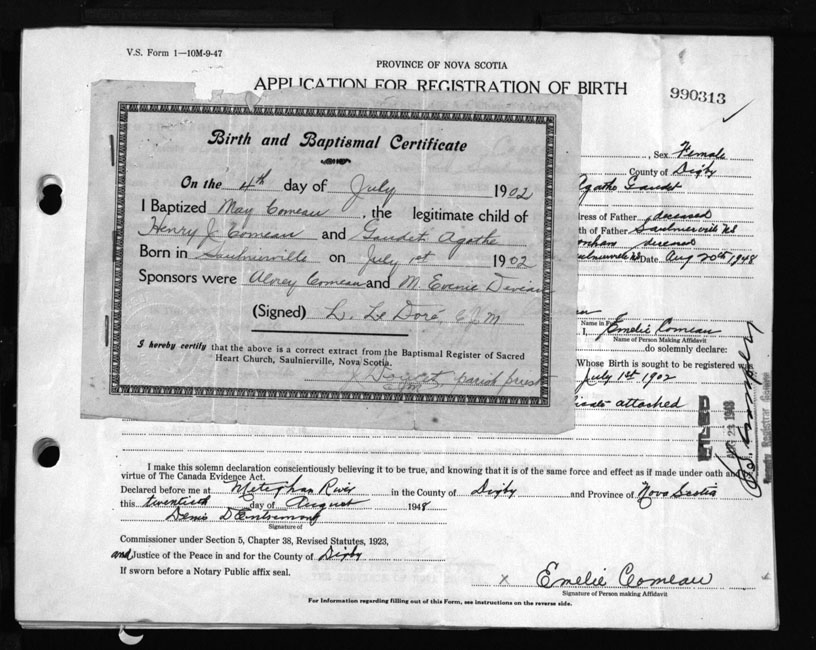 V.S. Form 1—10M-9-47
PROVINCE OF NOVA SCOTIA
APPLICATION FOR REGISTRATION OF BIRTH
990313
Birth and Baptismal Certificate
On the 4th day of July 1902
I Baptized May Comeau, the legitimate child of
Henry J Comeau and Gaudet Agathe
Born in Saulnierville on July 1st 1902
Sponsors were Comeau and M.
(Signed) L. Le Doré, C.J.M
I hereby certify that the above is a correct extract from the Baptismal Register of Sacred
Heart Church, Saulnierville, Nova Scotia.
parish priest
, Sex Female
County of Digby
Agathe Gaudet
dress of Father deceased
th of Father Saulnierville NS
deceased
Date Aug 20th 1948
Name in Full
I, Emelie Comeau
Name of Person Making Affidavit
do solemnly declare:
Whose Birth is sought to be registered
July 1st 1902
attached
I make this solemn declaration conscientiously believing it to be true, and knowing that it is of the same force and effect as if made under oath and
virtue of The Canada Evidence Act.
Declared before me at Meteghan River in the County of Digby and Province of Nova Scotia
this twentieth day of August 1948
Denis D'Entremont
Signature of
Commissioner under Section 5, Chapter 38, Revised Statutes, 1923,
and Justice of the Peace in and for the County of Digby
If sworn before a Notary Public affix seal.
x Emelie Comeau
Signature of Person making Affidavit
For Information regarding filling out of this Form, see instructions on the reverse side.